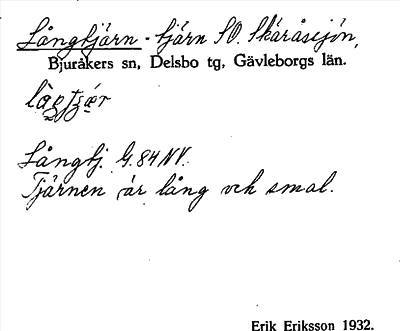 Långtjärn - tjärn SO. Skåråsejön,
Bjuråkers sn, Delsbo tg, Gävleborgs län.
Långtj. G. 84 NV.
Tjärnen är lång och smal.
Erik Eriksson 1932.